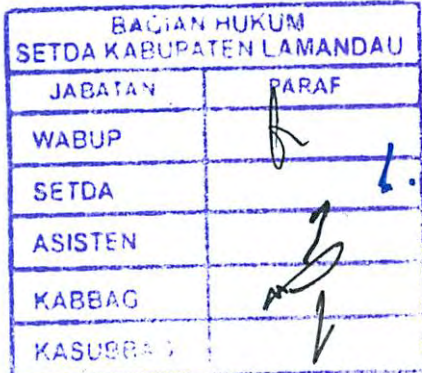 BAGIAN HUKUM
SETDA KABUPATEN LAMANDAU
JABATAN PARAF
WABUP
SETDA
ASISTEN
KABBAG
KASUBBAG